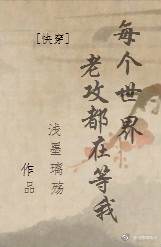 [快穿]
每个世界
老攻都在等我
浅墨璃殇
作品